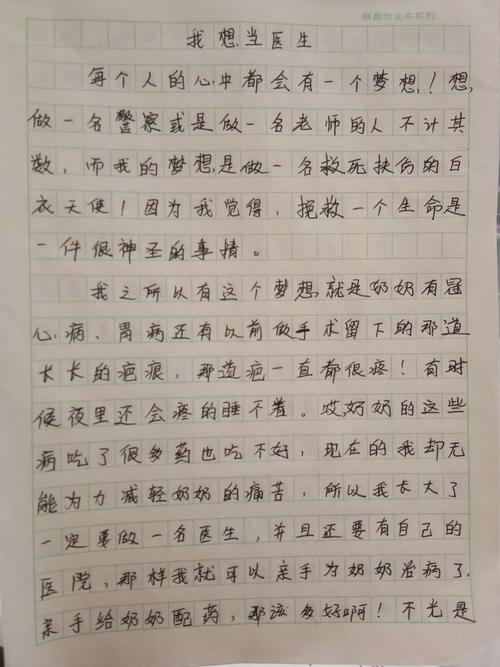 精品作业本系列
我想当医生
每个人的心中都会有一个梦想,！想,
做一名警察或是做一名老师的人不计其
数，而我的梦想,是做一名救死扶伤的白
衣天使！因为我觉得，挽救一个生命是
一件很神圣的事情。
我之所以有这个梦想,就是奶奶有冠
心,病、胃病还有以前做手术留下的那道
长长的疤痕，那道疤一直都很疼！有时
候夜里还会疼的睡不着。哎,奶奶的这些
病吃了很多药也吃不好，现在的我却无
能为力减轻奶奶的痛苦，所以我长大了
一定要做一名医生，并且还要有自己的
医院，那样我就可以亲手为奶奶治病了,
亲手给奶奶配药，那该多好啊！不光是